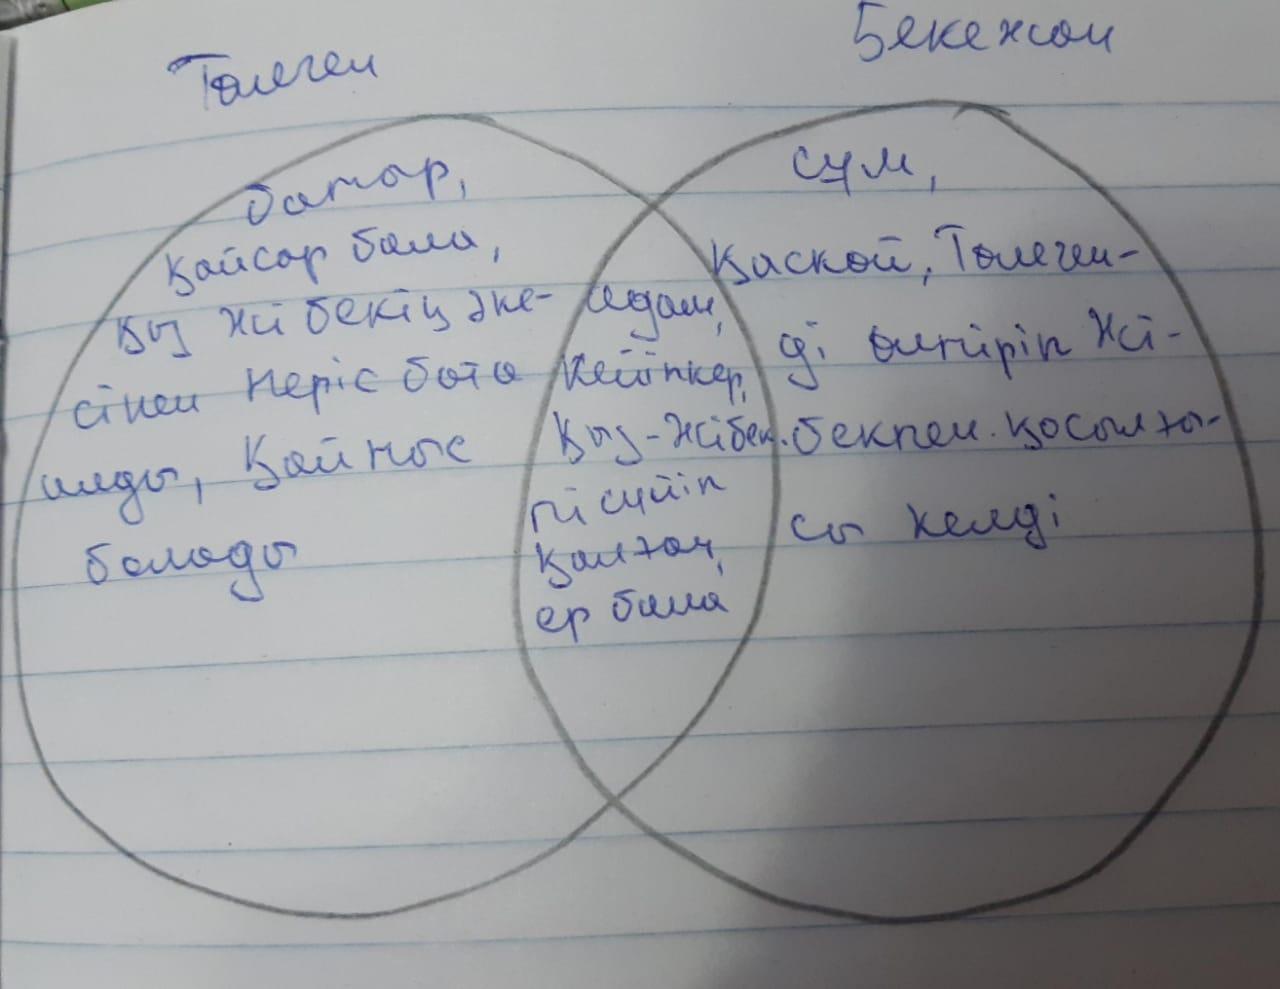 Төлеген
Бекежан
батыр,
қайсар бала,
Қыз Жібекің әке-
сінен теріс бата
алды, Қайтыс
болады
адам,
кейіпкер,
Қыз-Жібек.
ті сүйіп
қалған,
ер бала
сұм,
Қаскөй, Төлеген-
ді өлтіріп Жі-
бекпен қосылғы-
сы келді